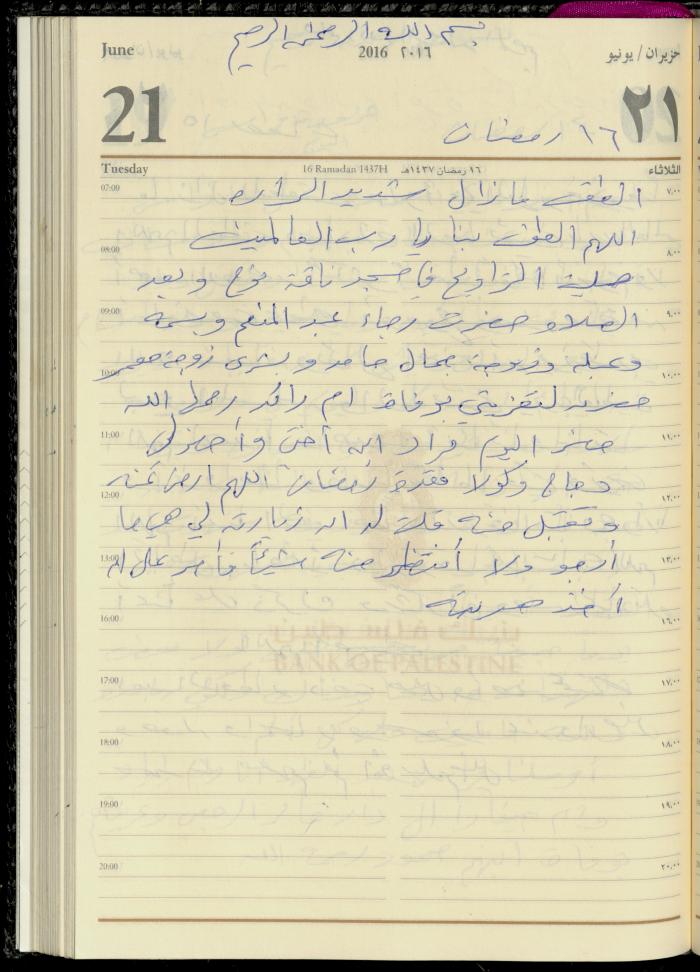 بسم الله الرحمن الرحيم
June 2016 ٢٠١٦ حزيران / يونيو
21 ٢١
١٦ رمضان
Tuesday 16 Ramadan 1437H ١٦ رمضان ١٤٣٧هـ الثلاثاء
07:00 ٧,٠٠
الطقس ما زال شديد الحرارة
اللهم الطف بنا يا رب العالمين
08:00 ٨,٠٠
صليت التراويح في مسجد ناقة نوح وبعد
09:00 ٩,٠٠
الصلاة حضرت رجاء عبد المنعم وبسمة
وعبله وزوجة جمال حامد وبشرى زوجة معمر
10:00 ١٠,٠٠
حضرت لتعزيتي بوفاة ام رائد رحمها الله
11:00 ١١,٠٠
حضر اليوم فراد ابن أختي وأحضر لي
دجاج وكولا فقدة رمضان اللهم ارض عنه
12:00 ١٢,٠٠
وتقبل منه قلت له ان زيارته لي هي ما
13:00 ١٣,٠٠
أرجو ولا أنتظر منه شيئاً فأصر على ان
آخذ هديته
16:00 ١٦,٠٠
بنك فلسطين
BANK OF PALESTINE
17:00 ١٧,٠٠
18:00 ١٨,٠٠
19:00 ١٩,٠٠
20:00 ٢٠,٠٠